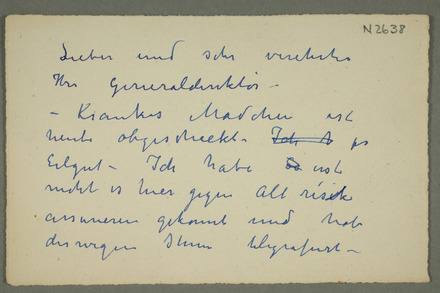 N2638
Lieber und sehr verehrter
Herr Generaldirektor –
– Krankes Mädchen ist
heute abgeschickt. Ich per
Eilgut – Ich habe erst
nicht es hier gegen all risk
assurieren gekonnt und hab
deswegen Ihnen telegrafiert –